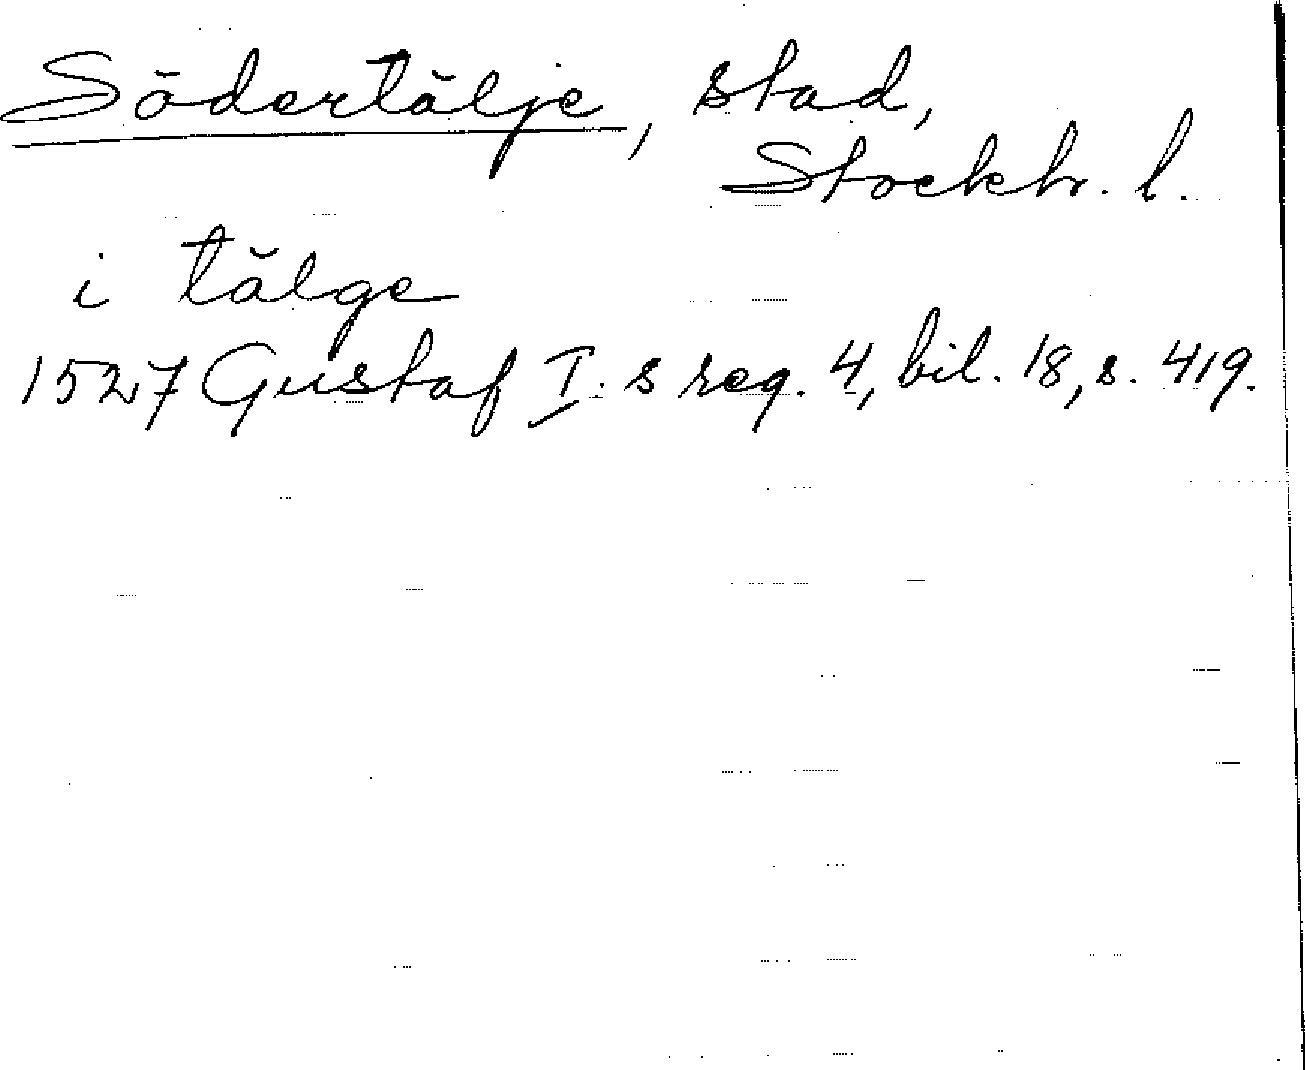 Södertälje, stad,
Stockh. l.
i tälge
1527 Gustaf I:s reg. 4, bil. 18, s. 419.